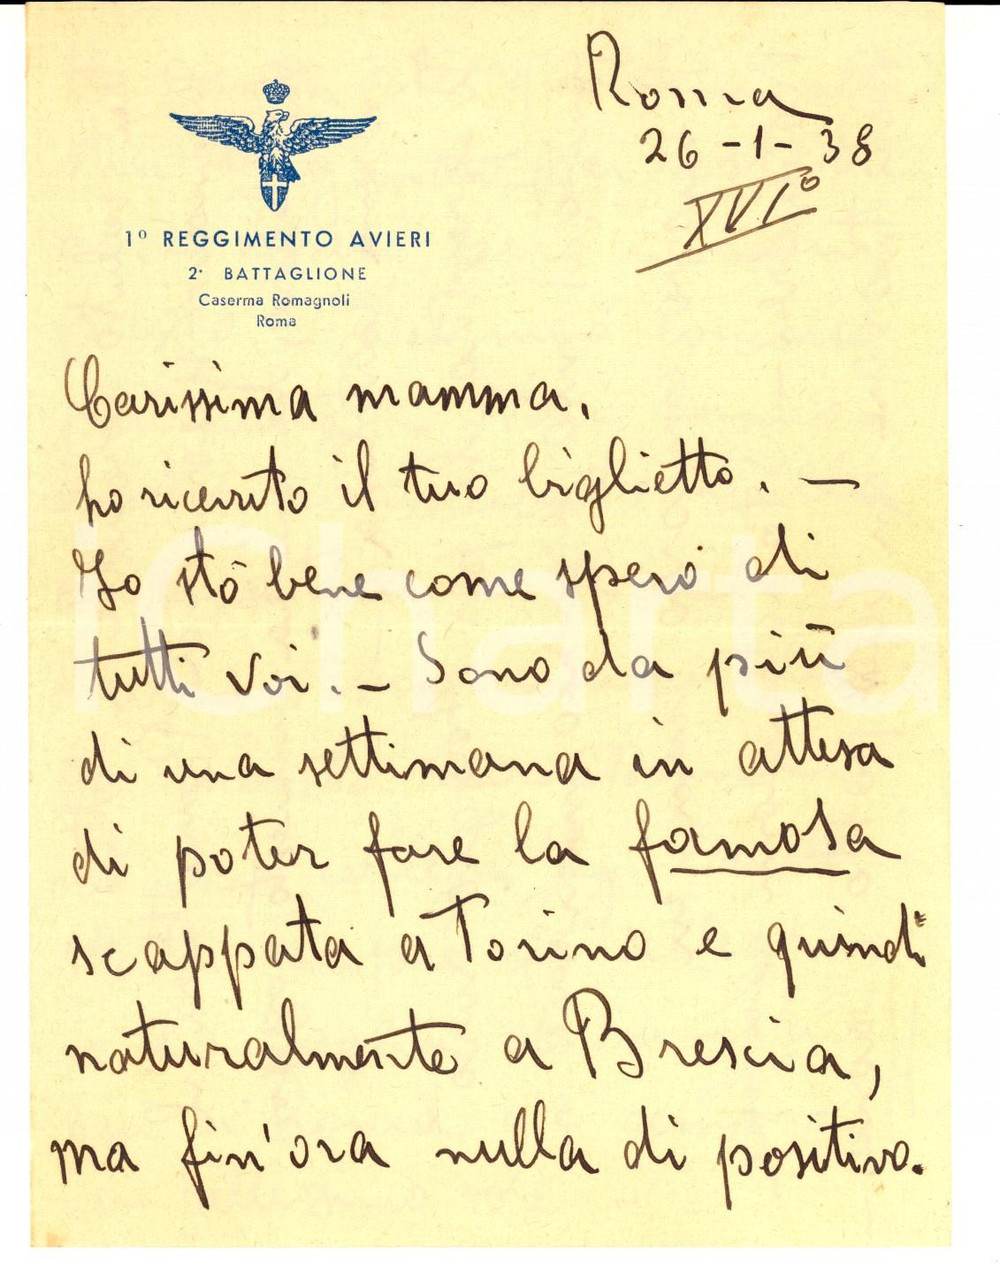 Roma
26-1-38
XVI°
1° REGGIMENTO AVIERI
2° BATTAGLIONE
Caserma Romagnoli
Roma
Carissima mamma,
ho ricevuto il tuo biglietto. —
Io stò bene come spero di
tutti voi. — Sono da più
di una settimana in attesa
di poter fare la famosa
scappata a Torino e quindi
naturalmente a Brescia,
ma fin'ora nulla di positivo.
iCharta